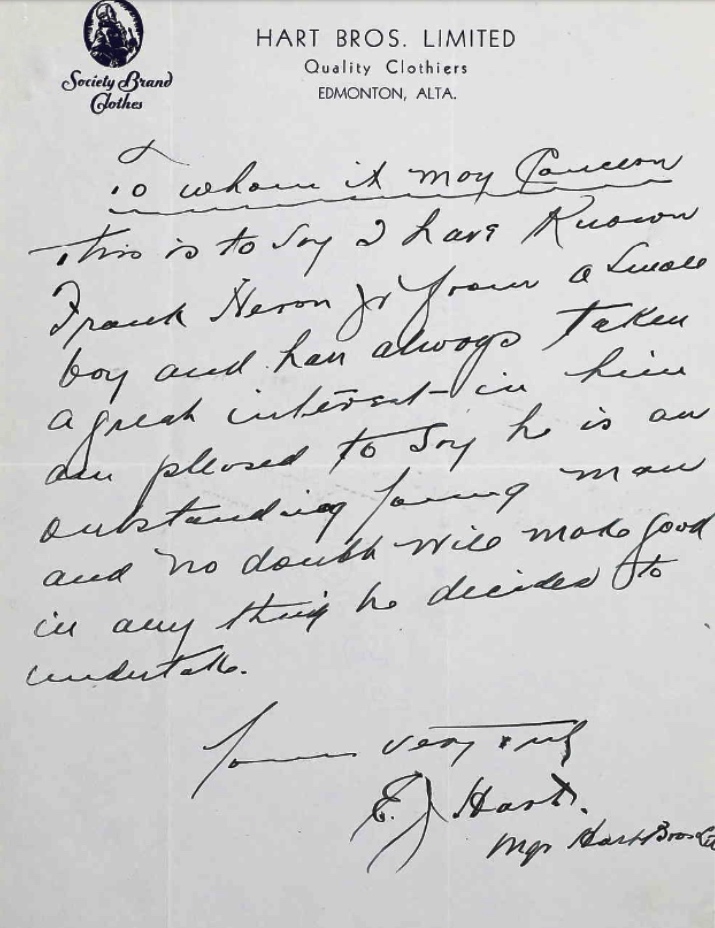 Society Brand
Clothes
HART BROS. LIMITED
Quality Clothiers
EDMONTON, ALTA.
To whom it may Concern
This is to say I have Known
Frank Heron Jr from a small
boy and has always taken
a great interest in him
am pleased to say he is an
outstanding young man
and no doubt will make good
in any thing he decides to
undertake.
Yours very truly
E. J. Hart.
Mgr Hart Bros Ltd